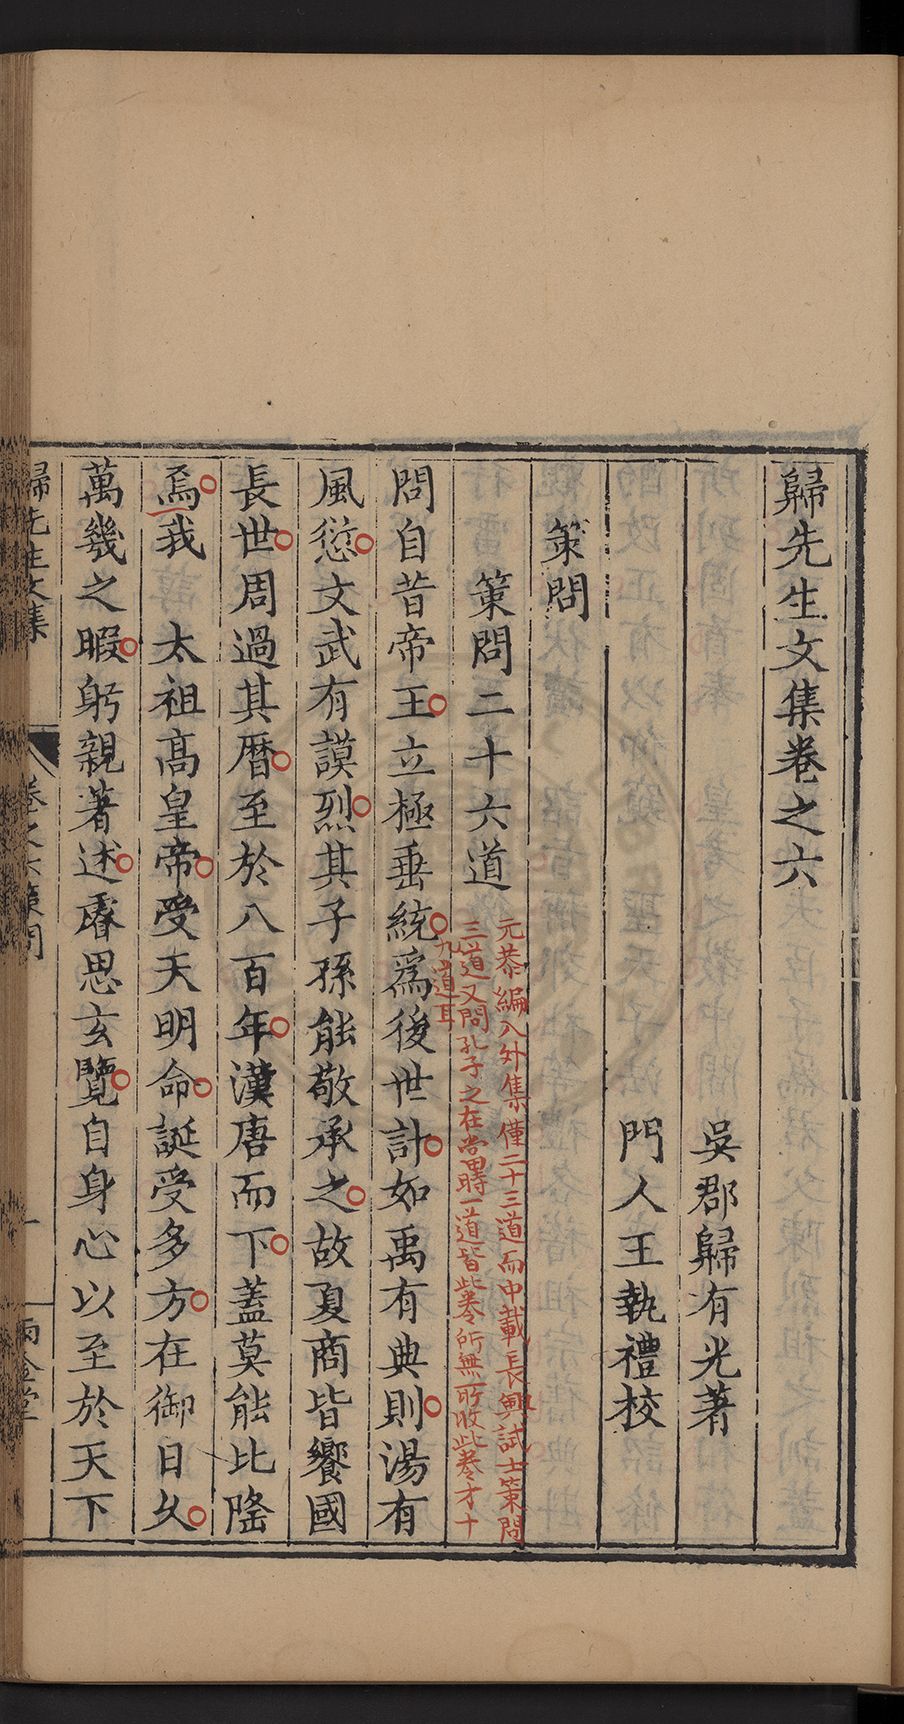 歸先生文集卷之六
吳郡歸有光著
門人王執禮校
策問
策問二十六道
元恭編入外集僅二十三道而中載長興試士策問
三道又問孔子之在當時一道皆此卷所無所收此卷才十
九道耳
問自昔帝王立極垂統爲後世計如禹有典則湯有
風愆文武有謨烈其子孫能敬承之故夏商皆饗國
長世周過其曆至於八百年漢唐而下蓋莫能比隆
焉我太祖高皇帝受天明命誕受多方在御日久
萬幾之暇躬親著述睿思玄覽自身心以至於天下
歸先生文集
卷之六策問
一